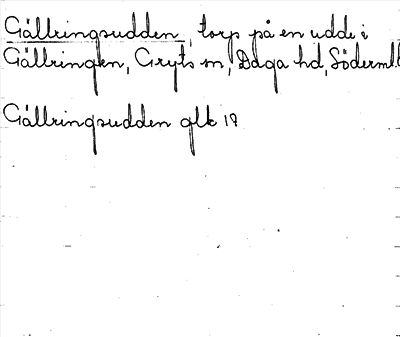 Gällringsudden, torp på en udde i
Gällringen, Gryts sn, Daga hd, Söderml.
Gällringsudden glk 19